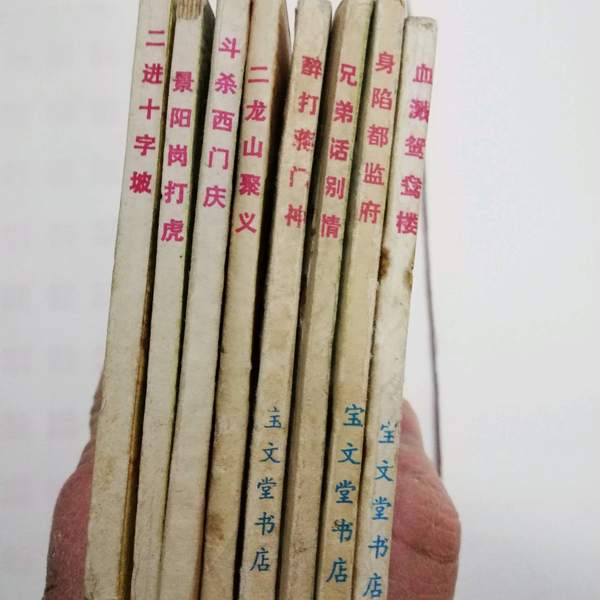 二进十字坡
景阳岗打虎
斗杀西门庆
二龙山聚义
醉打蒋门神
宝文堂书店
兄弟话别情
身陷都监府
宝文堂书店
血溅鸳鸯楼
宝文堂书店